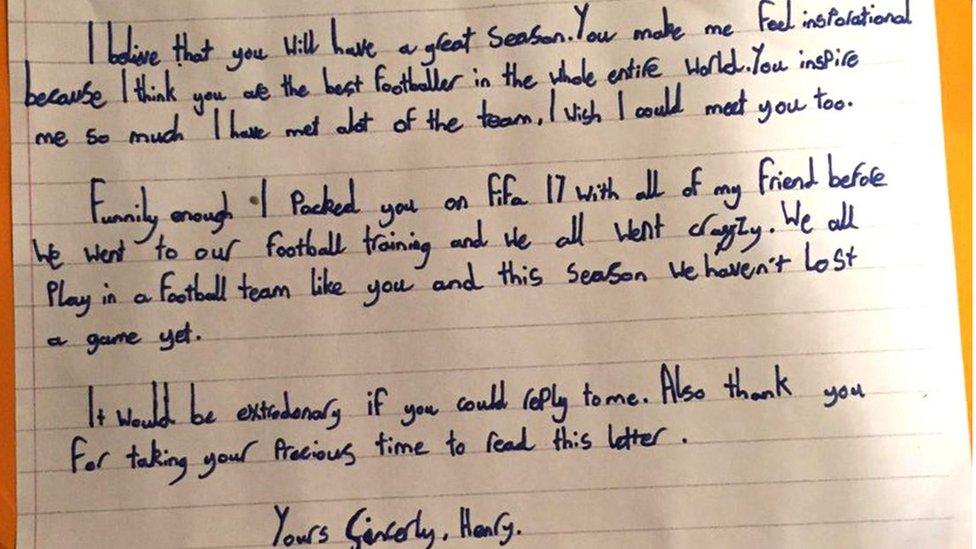 I belive that you will have a great season. You make me feel insporational
because I think you are the best footballer in the whole entire world. You inspire
me so much I have met alot of the team, I wish I could meet you too.
Funnily enough I packed you on fifa 17 with all of my friend before
we went to our football training and we all went crayzy. We all
play in a football team like you and this season we haven't lost
a game yet.
It would be extrodonary if you could reply to me. Also thank you
for taking your precious time to read this letter.
Yours Sincerly, Henry.